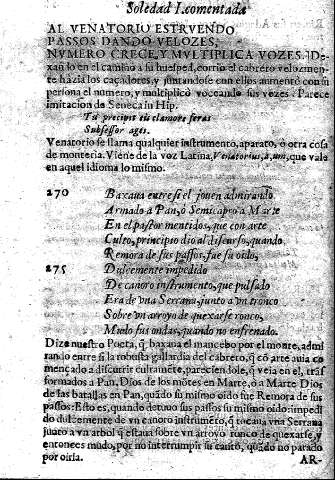 Soledad I. comentada
AL VENATORIO ESTRVENDO
PASSOS DANDO VELOZES,
NVMERO CRECE, Y MVLTIPLICA VOZES. De-
xãdo en el camino a su huesped, corrio el cabrero velozmen-
te hazia los caçadores, y juntandose con ellos aumentò con su
persona el numero, y multiplicò voceando sus vezes. Parece
imitacion de Seneca in Hip.
Tu præcipiti clamore feras
Subsessor ages.
Venatorio se llama qualquier instrumento, aparato, ò otra cosa
de monteria. Viene de la voz Latina, Venatorius, a, um, que vale
en aquel idioma lo mismo.
270 Baxaua entre si el jouen admirando
Armado a Pan, ò Semicapro a Marte
En el pastor mentidos, que con arte
Culto, principio dio al discurso, quando
Remora de sus passos, fue su oido,
275 Dulcemente impedido
De canoro instrumento, que pulsado
Era de vna Serrana, junto a vn tronco
Sobre vn arroyo de quexarse ronco,
Mudo sus ondas, quando no enfrenado.
Dize nuestro Poeta, q̃ baxaua el mancebo por el monte, admi
rando entre si la robusta gallardia del cabrero, q̃ cõ arte auia co
mençado a discurrir cultamẽte, pareciendole, q̃ veìa en el, tras
formados a Pan, Dios de los mõtes en Marte, ò a Marte Dios
de las batallas en Pan, quãdo su mismo oido fue Remora de sus
passos: Esto es, quando detuuo sus passos su mismo oido: impedi
do dulcemente de vn canoro instrumẽto, q̃ tocaua vna Serrana
junto a vn arbol q̃ estaua sobre vn arroyo ronco de quexarse, y
entonces mudo, por no interrumpir su canto, quãdo no parado
por oirla.
AR-